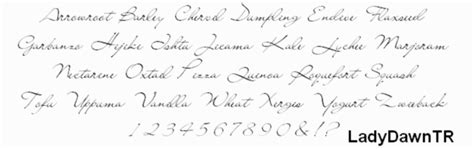 Arrowroot Barley Chervil Dumpling Endive Flaxseed
Garbanzo Hijiki Ishtu Jicama Kale Lychee Marjoram
Nectarine Oxtail Pizza Quinoa Roquefort Squash
Tofu Uppuma Vanilla Wheat Xergis Yogurt Zweiback
1234567890&!?
LadyDawnTR